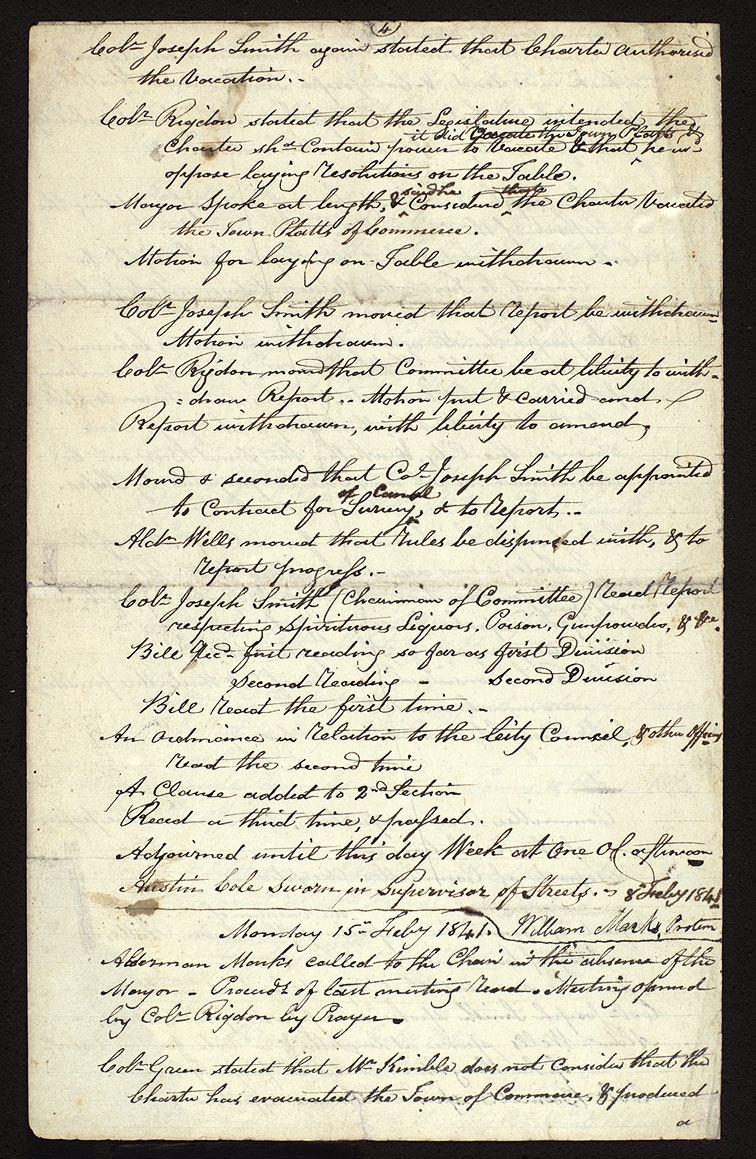 4
Colr. Joseph Smith again stated that Charter authorised
the Vacation.-
Colr. Rigdon stated that the Legislature intended, the
it did Vacate the Town Platts &
Charter shd. Contain power to Vacate & that he wd.
oppose laying resolutions on the Table.
said he
Mayor Spoke at length, & Considered the Charter Vacated
the Town Platts of Commerce.
Motion for laying on Table withdrawn.
Colr. Joseph Smith moved that report be withdrawn
Motion withdrawn.
Colr. Rigdon moved that Committee be at liberty to with-
=draw Report.. Motion put & carried and
Report withdrawn, with liberty to amend,
Moved & seconded that Col. Joseph Smith be appointed
of Cannal
to Contract for Survey, & to report..
Aldn. Wells moved that rules be dispensed with, & to
report progress.-
Colr. Joseph Smith (Chairman of Committee) read report
respecting Spirituous Liquors, Poison, Gunpowder, & &c.
Bill Recd. first reading so far as first Division
Second reading - Second Division
Bill read the first time.-
An ordinance in relation to the City Council, & other officers
read the second time
A Clause added to 2nd Section
Read a third time, & passed.
Adjourned until this day Week at One OC. afternoon
Austin Cole Sworn in Supervisor of Streets.- 8th Feby 1841
Monday 15th Feby 1841. William Marks, Protem
Alderman Marks called to the Chair in the absence of the
Mayor - Proceedgs of last meeting read. Meeting opened
by Colr. Rigdon by Prayer.
Colr. Green stated that Mr. Kimble does not consider that the
Charter has evacuated the Town of Commerce, & produced
a